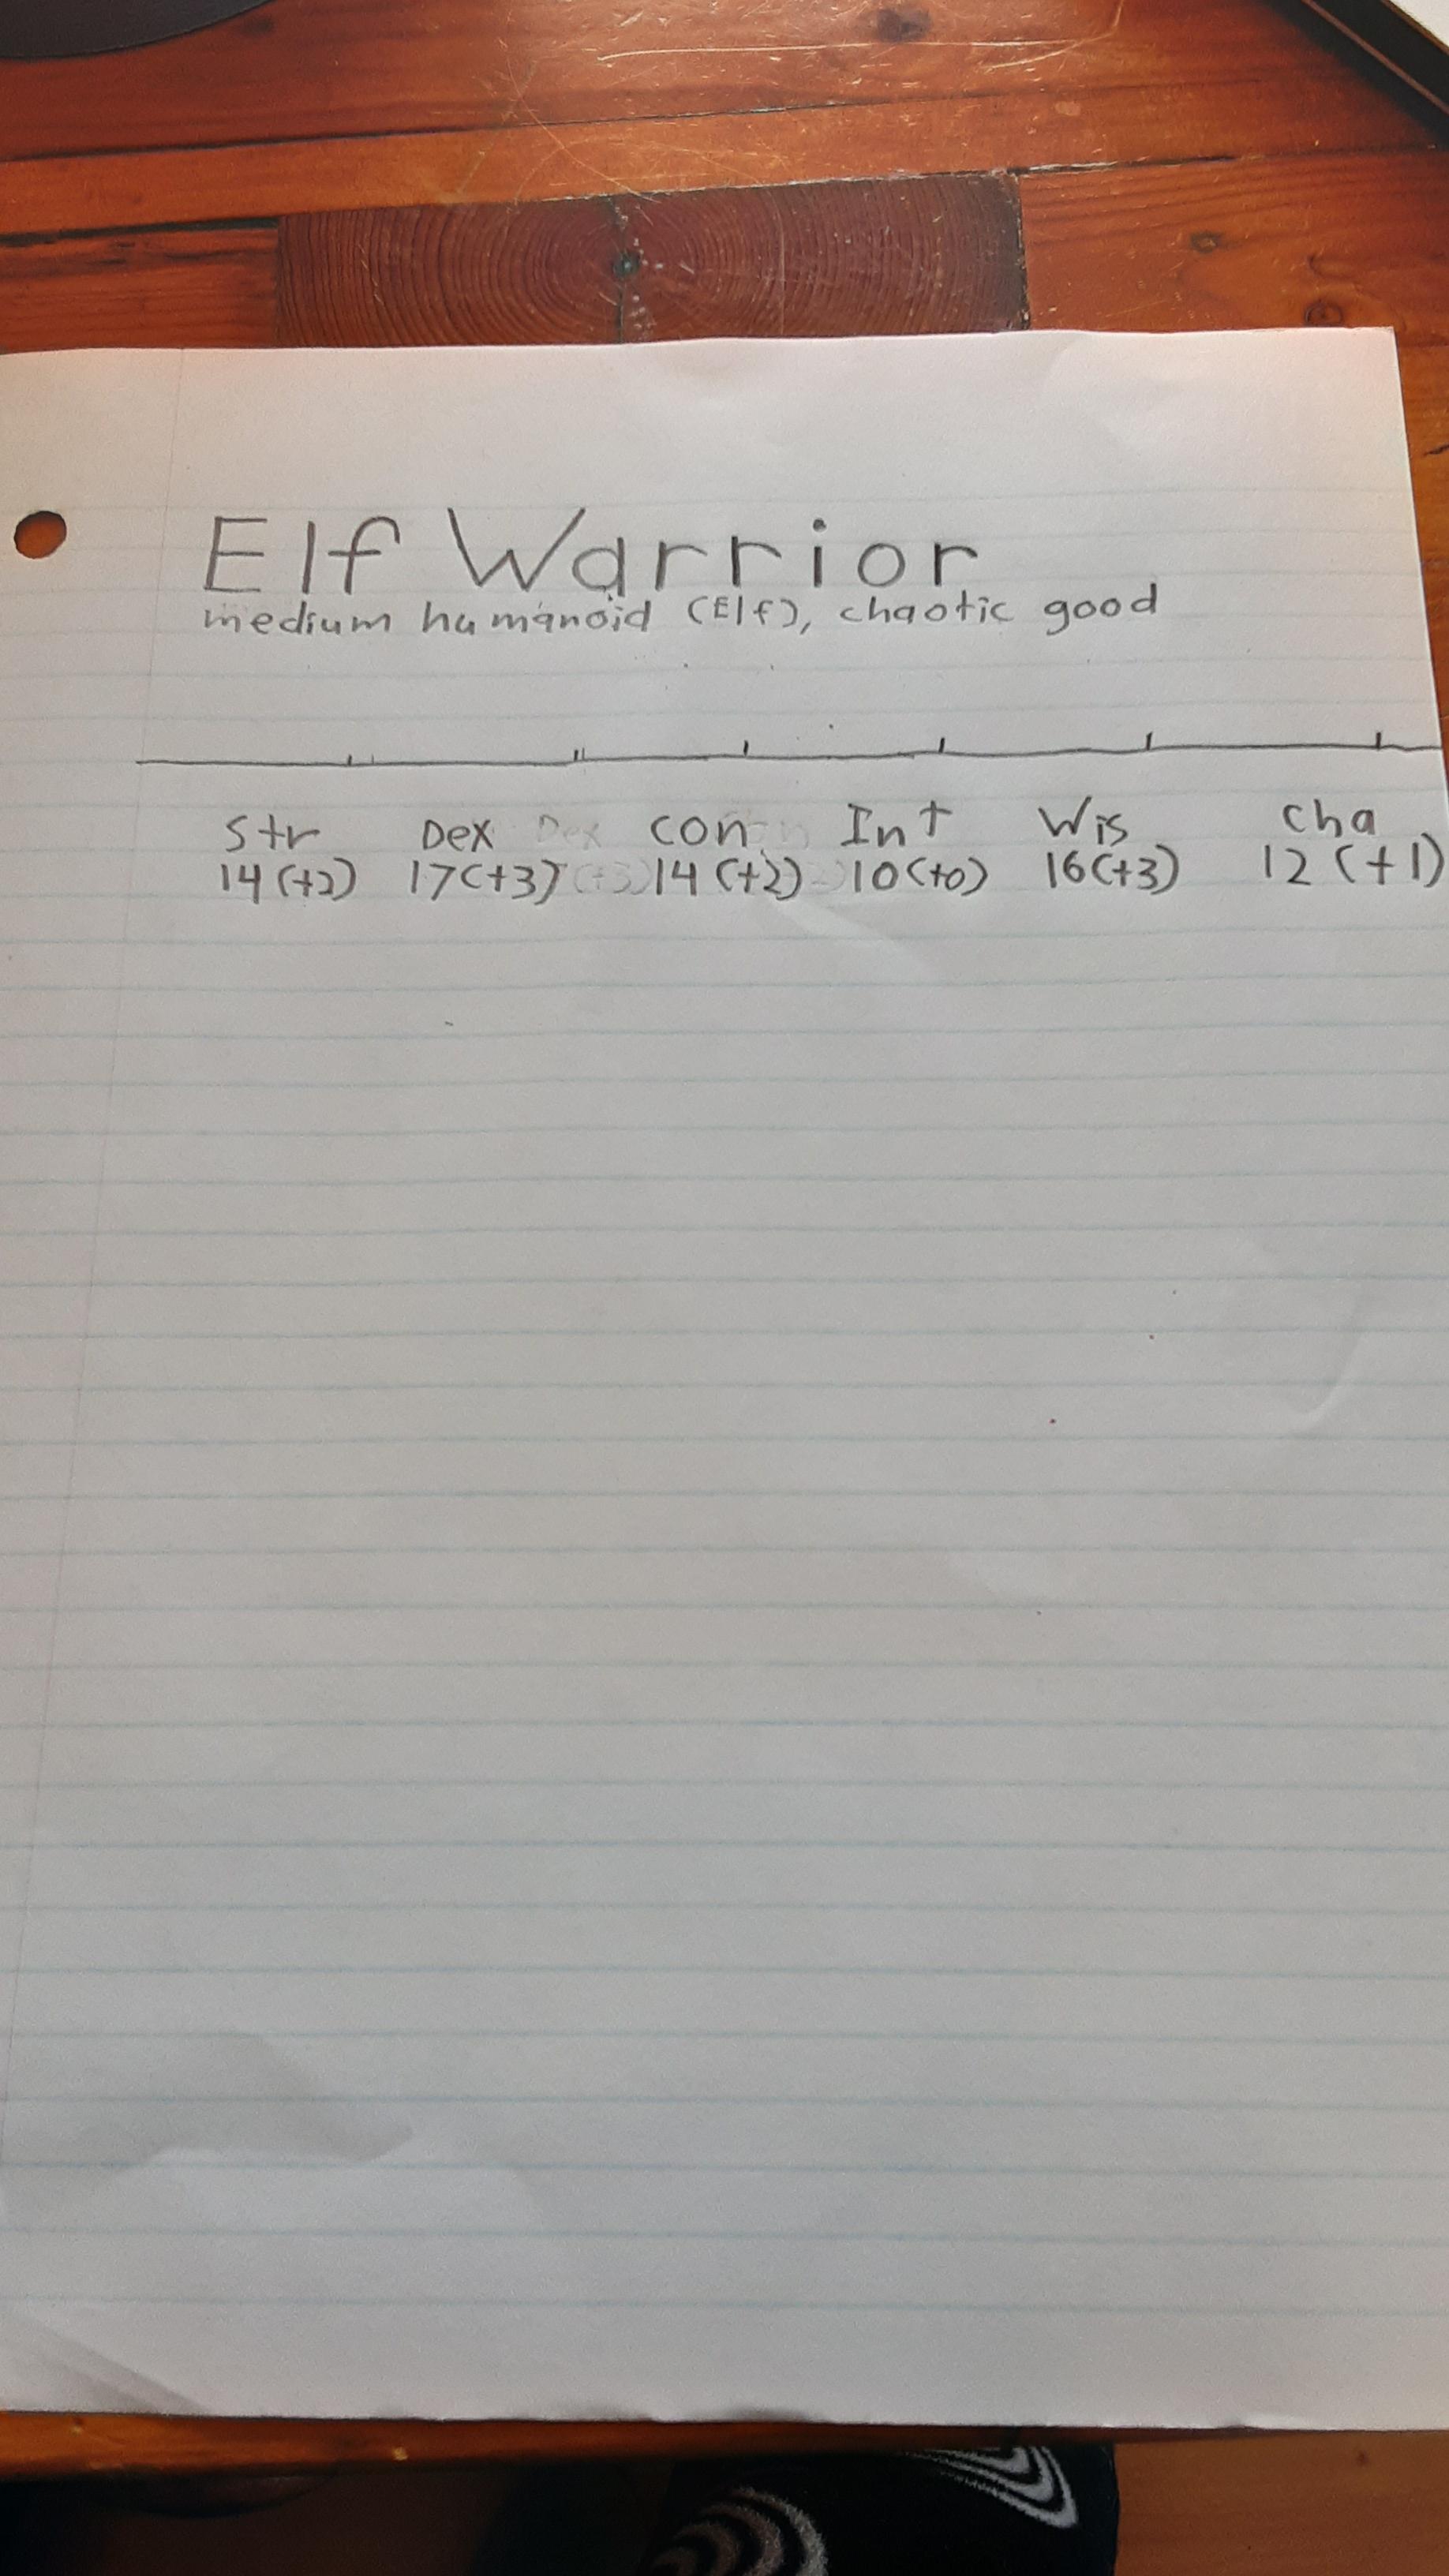 Elf Warrior
medium humanoid (Elf), chaotic good
Str Dex Dex Con Int Wis Cha
14 (+2) 17 (+3) (+3) 14 (+2) 10 (+0) 16 (+3) 12 (+1)